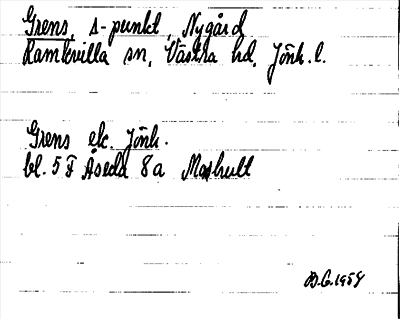 Grens, s-punkt, Nygård
Ramkvilla sn, Västra hd, Jönk. l.
Grens ek. Jönk.
bl. 5 F Åseda 8a Moshult
B.G. 1958